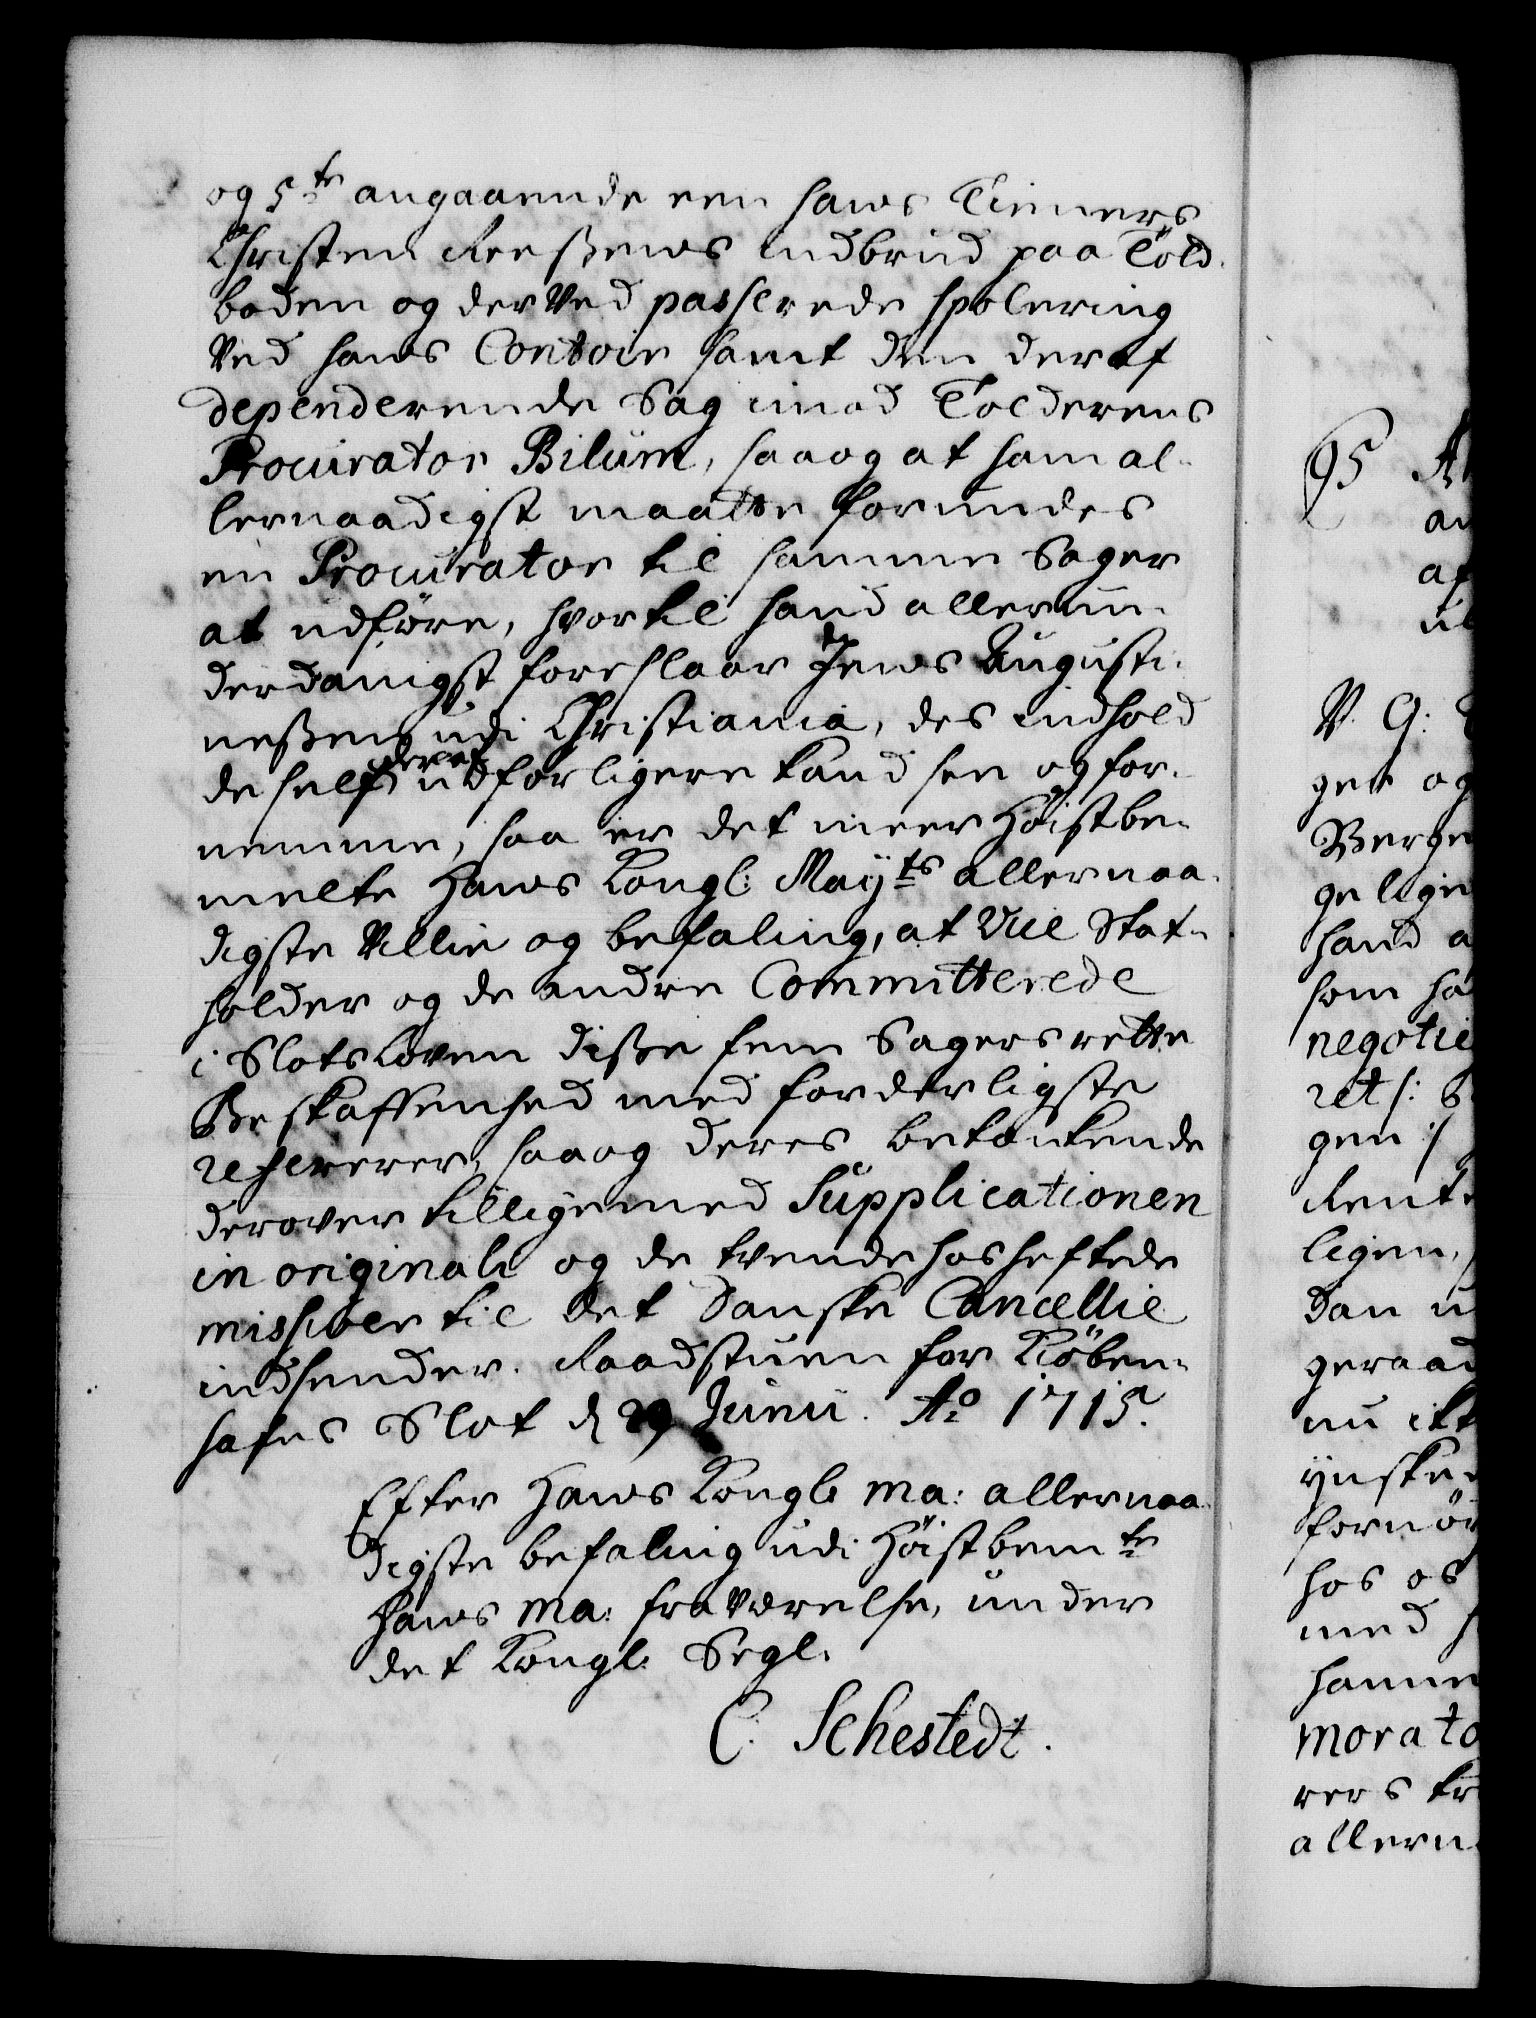 og 5te angaaende een hans Tieners
Christen Reeßens indbrud paa Told¬
boden og derved passerede spolering
ved hans Contoir samt den deraf
dependerende Sag imod Tolderens
Procurator Bilum, saaog at ham al¬
lernaadigst maatte forundes
en Procurator til samme Sager
at udføre, hvortil hand allerun¬
derdanigst foreslaar Jens Augusti¬
neßen udi Christiania, des indhold
de self deraf udforligere kand see og for¬
nemme, saa er det meer Høistbe¬
melte Hans Kongl: Mayts allernaa¬
digste Villie og befaling, at Vice Stat¬
holder og de andre Committerede
i Slotsloven diße fem Sagers rette
Beskaffenhed med forderligste
refererer, saaog deres betænkende
derover tilligemed Supplicationen
in originali og de tvende hosheftede
missiver til det Danske Cancellie
indsender. Raadstuen for Kiøben¬
hafns Slot d 29 Junii. Ao 1715.
Efter Hans Kongl: Ma: allernaa¬
digste befaling udi Høistbemte
Hans Ma: fraværelse, under
det Kongl: Segl.
C. Sehestedt.
95
V. G:
ger og
Berge
gelige
hand a
som ha
negotie
ret/: S
gen:/
Rente
ligen,
dan u
geraad
nu ikk
ynske
fornø
hos os
med h
hanne
morato
rers tr
allern